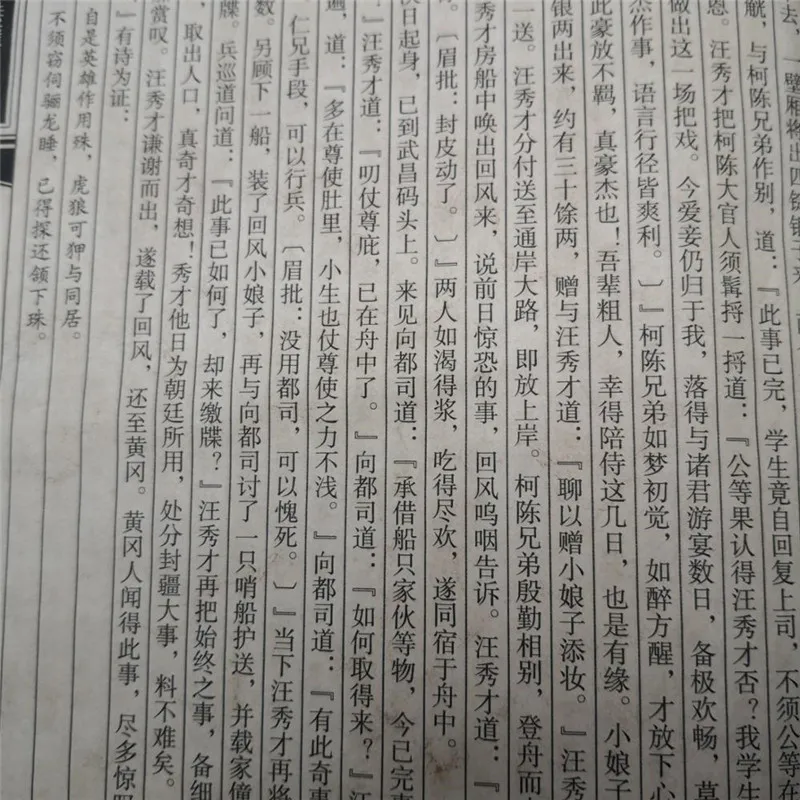 去，一壁厢将出四
觥，与柯陈兄弟作别，道：『此事已完，学生竟自回复上司，不须公等在
恩。汪秀才把柯陈大官人须髯捋一捋道：『公等果认得汪秀才否？我学生
做出这一场把戏。今爱妾仍归于我，落得与诸君游宴数日，备极欢畅，莫
杰作事，语言行径皆爽利。〕』柯陈兄弟如梦初觉，如醉方醒，才放下心
此豪放不羁，真豪杰也！吾辈粗人，幸得陪侍这几日，也是有缘。小娘子
银两出来，约有三十馀两，赠与汪秀才道：『聊以赠小娘子添妆。』汪秀
一送。汪秀才分付送至通岸大路，即放上岸。柯陈兄弟殷勤相别，登舟而
秀才房船中唤出回风来，说前日惊恐的事，回风呜咽告诉。汪秀才道：『
。〔眉批：封皮动了。〕』两人如渴得浆，吃得尽欢，遂同宿于舟中。
日起身，已到武昌码头上。来见向都司道：『承借船只家伙等物，今已完
？』汪秀才道：『叨仗尊庇，已在舟中了。』向都司道：『如何取得来？』汪
遍，道：『多在尊使肚里，小生也仗尊使之力不浅。』向都司道：『有此奇事
仁兄手段，可以行兵。〔眉批：没用都司，可以愧死。〕』当下汪秀才再将
数。另顾下一船，装了回风小娘子，再与向都司讨了一只哨船护送，并载家僮
牒。兵巡道问道：『此事已如何了，却来缴牒？』汪秀才再把始终之事，备细
，取出人口，真奇才奇想！秀才他日为朝廷所用，处分封疆大事，料不难矣。
赏叹。汪秀才谦谢而出，遂载了回风，还至黄冈。黄冈人闻得此事，尽多惊
，有诗为证：
自是英雄作用殊，虎狼可狎与同居。
不须窃伺骊龙睡，已得探还颔下珠。